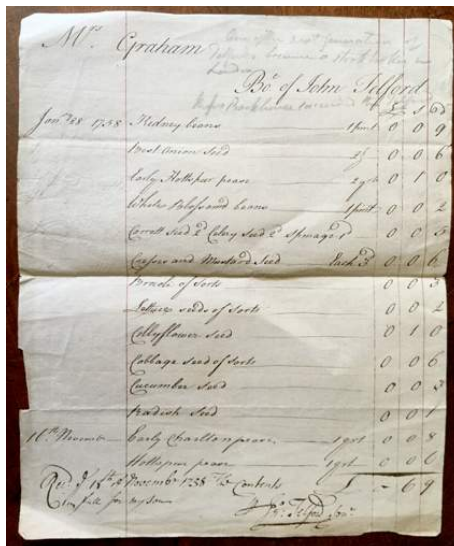 Mrs Graham
Bot of John Telford
£ s d
Janry 28 1758 Kidney beans 1 pint 0 0 9
Best onion seed 0 0 6
Early Hottspur pease 2 qrts 0 1 0
White Blossomd beans 1 pint 0 0 2
Carrott seed 2d Celary seed 2d Spinage 1d 0 0 5
Cresses and Mustard seed Each 3d 0 0 6
of sorts 0 0 3
Lettuce seeds of sorts 0 0 2
Collyflower seed 0 1 0
Cabbage seed of sorts 0 0 6
Cucumber seed 0 0 3
Radish seed 0 0 1
November Early Charlton pease 1 qrt 0 0 8
Hottspur pease 1 qrt 0 0 6
Novembr 1758 the Contents - 6 9
In full for my son
Jno Telford Senr